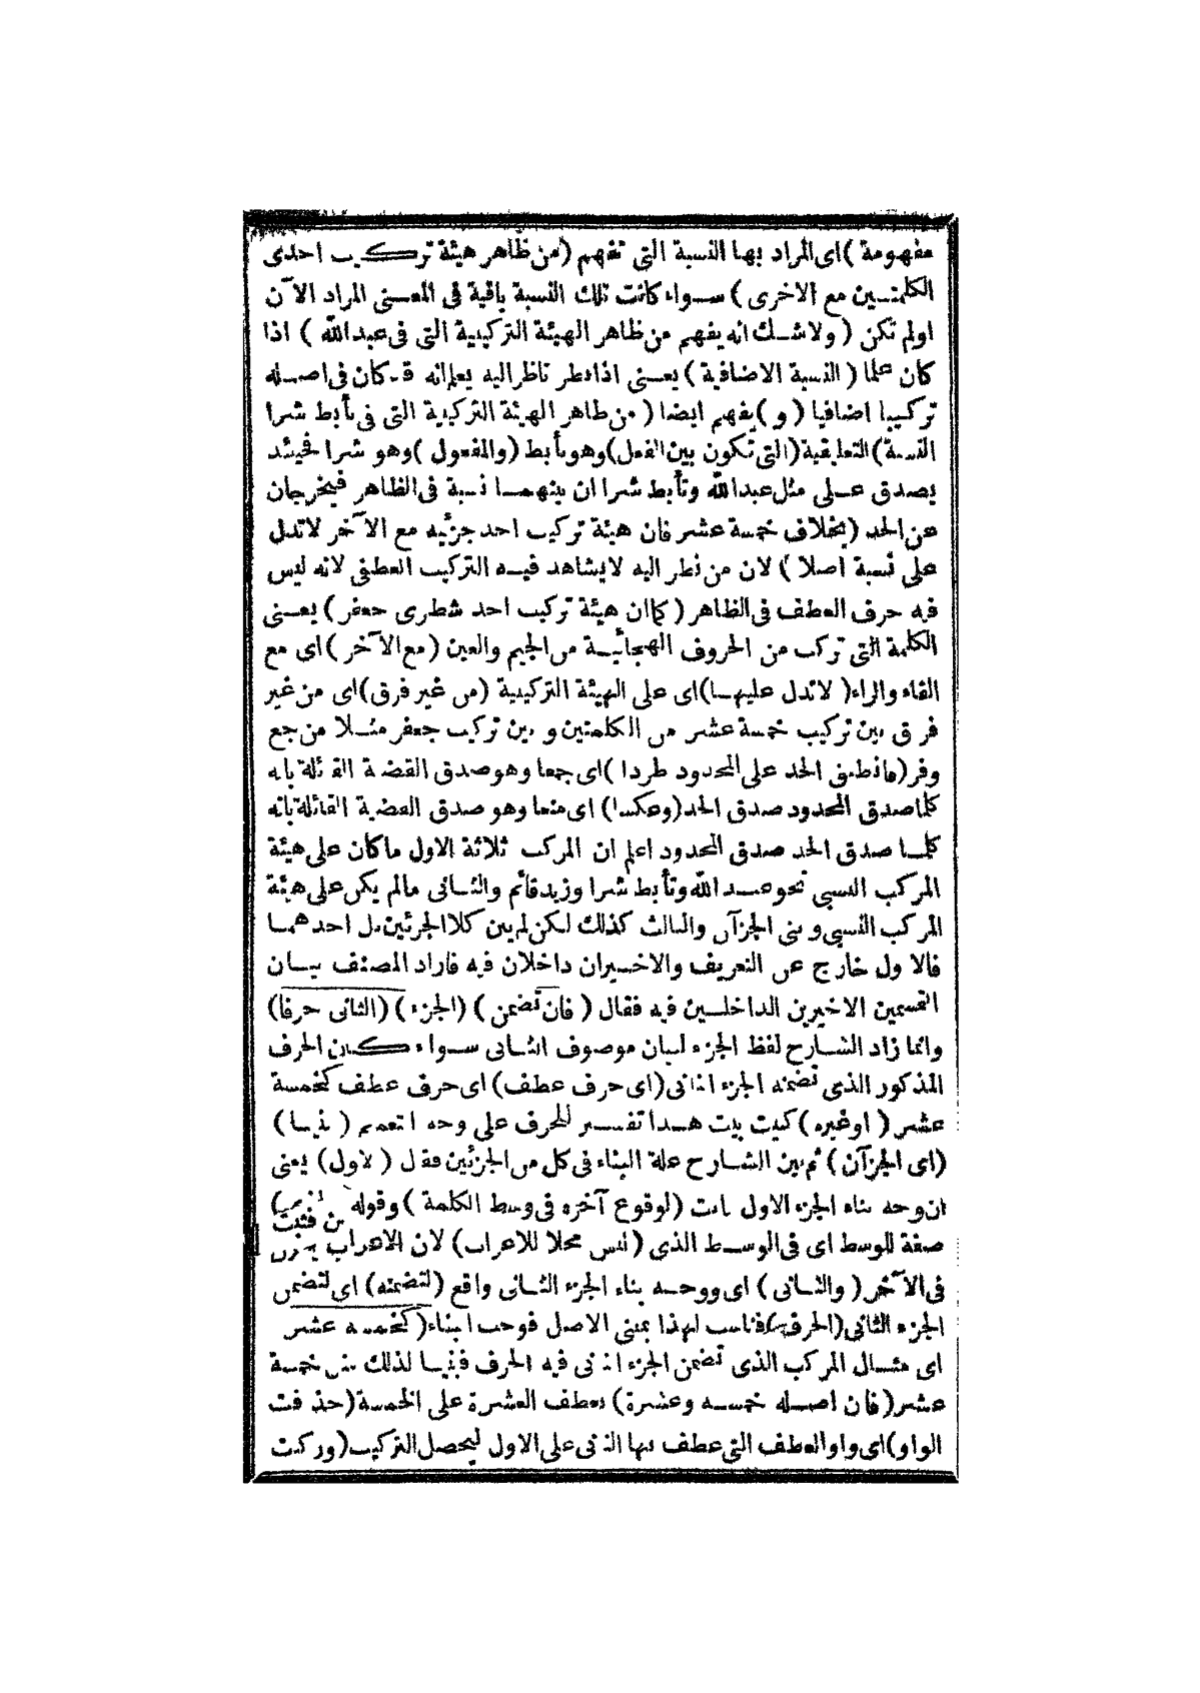 مفهومة) اى المراد بها النسبة التى تفهم (من ظاهر هيئة تركيب احدى
الكلمتين مع الاخرى) سواء كانت تلك النسبة باقية فى المعنى المراد الآن
اولم تكن (ولاشك انه يفهم من ظاهر الهيئة التركيبية التى فى عبدالله) اذا
كان علما (النسبة الاضافية) يعنى اذا نظر ناظر اليه يعلم انه قد كان فى اصله
تركيبا اضافيا (و) يفهم ايضا (من ظاهر الهيئة التركيبية التى فى تأبط شرا
النسبة) التعليقية (التى تكون بين الفعل) وهو تأبط (والمفعول) وهو شرا فحينئذ
يصدق على مثل عبدالله وتأبط شرا ان بينهما نسبة فى الظاهر فيخرجان
عن الحد (بخلاف خمسة عشر فان هيئة تركيب احد جزئيه مع الآخر لاتدل
على نسبة اصلا) لان من نظر اليه لايشاهد فيه التركيب العطفى لانه ليس
فيه حرف العطف فى الظاهر (كما ان هيئة تركيب احد شطرى جعفر) يعنى
الكلمة التى تركب من الحروف الهجائية من الجيم والعين (مع الآخر) اى مع
الفاء والراء (لاتدل عليها) اى على الهيئة التركيبية (من غير فرق) اى من غير
فرق بين تركيب خمسة عشر من الكلمتين و بين تركيب جعفر مثلا من جع
وفر (فانطبق الحد على المحدود طردا) اى جمعا وهو صدق القضية القائلة بانه
كلما صدق المحدود صدق الحد (وعكسا) اى منعا وهو صدق القضية القائلة بانه
كلما صدق الحد صدق المحدود اعلم ان المركب ثلاثة الاول ما كان على هيئة
المركب النسبى نحو عبد الله وتأبط شرا وزيد قائم والثانى مالم يكن على هيئة
المركب النسبى و بنى الجزآن والثالث كذلك لكن لم يبن كلا الجزئين بل احدهما
فالاول خارج عن التعريف والاخيران داخلان فيه فاراد المصنف بيان
القسمين الاخيرين الداخلين فيه فقال (فان تضمن) (الجزء) (الثانى حرفا)
وانما زاد الشارح لفظ الجزء لبيان موصوف الثانى سواء كان الحرف
المذكور الذى تضمنه الجزء الثانى (اى حرف عطف) اى حرف عطف كخمسة
عشر (اوغيره) كبيت بيت هذا تفسير للحرف على وجه التعميم (بنيا)
(اى الجزآن) ثم بين الشارح علة البناء فى كل من الجزئين فقال (الاول) يعنى
ان وجه بناء الجزء الاول ثابت (لوقوع آخره فى وسط الكلمة) وقوله
صفة للوسط اى فى الوسط الذى (ليس محلا للاعراب) لان الاعراب يكون
فى الآخر (والثانى) اى ووجه بناء الجزء الثانى واقع (لتضمنه) اى لتضمن
الجزء الثانى (الحرف) فناسب لهذا بمبنى الاصل فوجب البناء (كخمسة عشر
اى مثال المركب الذى تضمن الجزء الثانى فيه الحرف فبنيا لذلك مثل خمسة
عشر (فان اصله خمسة وعشرة) بعطف العشرة على الخمسة (حذفت
الواو) اى واو العطف التى عطف بها الثانى على الاول ليحصل التركيب (وركبت